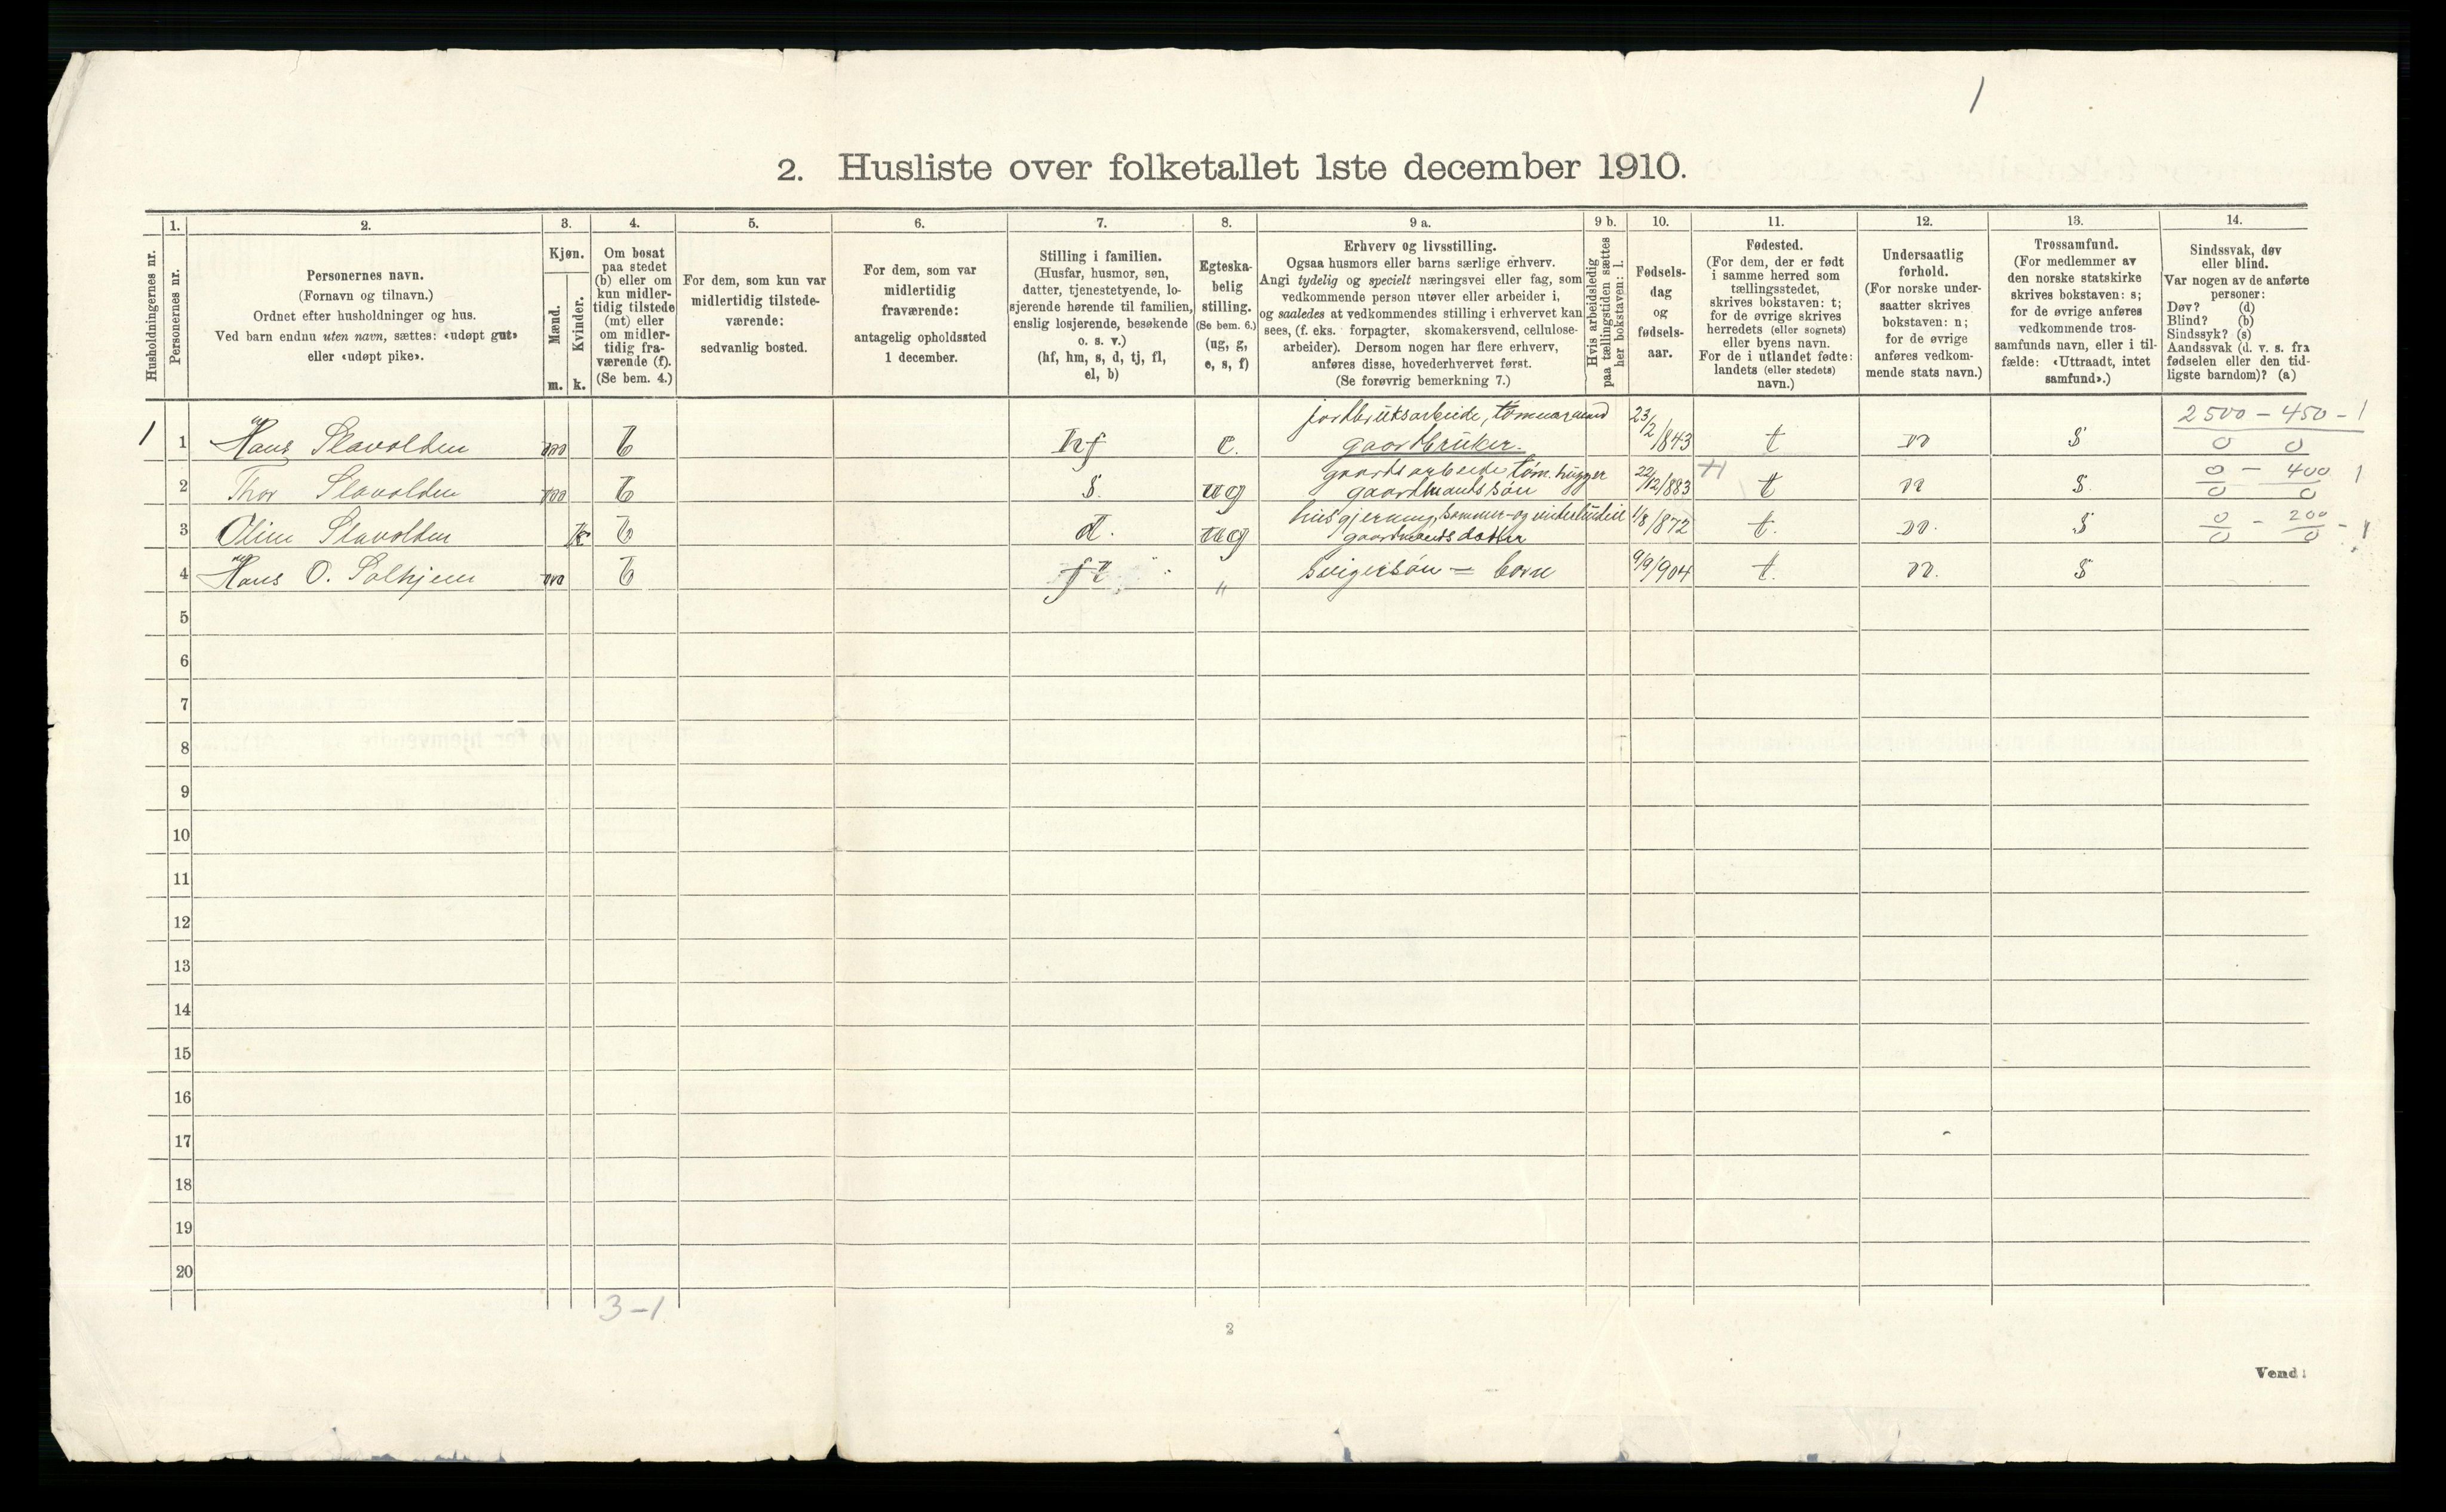 1
2. Husliste over folketallet 1ste december 1910.
Husholdningernes nr.
1.
Personernes nr.
2.
Personernes navn.
(Fornavn og tilnavn.)
Ordnet efter husholdninger og hus.
Ved barn endnu uten navn, sættes: «udøpt gut»
eller «udøpt pike».
3.
Kjøn.
Mænd.
Kvinder.
m. k.
4.
Om bosat
paa stedet
(b) eller om
kun midler-
tidig tilstede
(mt) eller
om midler-
tidig fra-
værende (f).
(Se bem. 4.)
5.
For dem, som kun var
midlertidig tilstede-
værende:
sedvanlig bosted.
6.
For dem, som var
midlertidig
fraværende:
antagelig opholdssted
1 december.
7.
Stilling i familien.
(Husfar, husmor, søn,
datter, tjenestetyende, lo-
sjerende hørende til familien,
enslig losjerende, besøkende
o. s. v.)
(hf, hm, s, d, tj, fl,
el, b)
8.
Egteska-
belig
stilling.
(Se bem. 6.)
(ug, g,
e, s, f)
9 a.
Erhverv og livsstilling.
Ogsaa husmors eller barns særlige erhverv.
Angi tydelig og specielt næringsvei eller fag, som
vedkommende person utøver eller arbeider i,
og saaledes at vedkommendes stilling i erhvervet kan
sees, (f. eks. forpagter, skomakersvend, cellulose-
arbeider). Dersom nogen har flere erhverv,
anføres disse, hovederhvervet først.
(Se forøvrig bemerkning 7.)
9 b.
Hvis arbeidsledig
paa tællingstiden sættes
her bokstaven: l.
10.
Fødsels-
dag
og
fødsels-
aar.
11.
Fødested.
(For dem, der er født
i samme herred som
tællingsstedet,
skrives bokstaven: t;
for de øvrige skrives
herredets (eller sognets)
eller byens navn.
For de i utlandet fødte:
landets (eller stedets)
navn.)
12.
Undersaatlig
forhold.
(For norske under-
saatter skrives
bokstaven: n;
for de øvrige
anføres vedkom-
mende stats navn.)
13.
Trossamfund.
(For medlemmer av
den norske statskirke
skrives bokstaven: s;
for de øvrige anføres
vedkommende tros-
samfunds navn, eller i til-
fælde: «Uttraadt, intet
samfund».)
14.
Sindssvak, døv
eller blind.
Var nogen av de anførte
personer:
Døv? (d)
Blind? (b)
Sindssyk? (s)
Aandssvak (d. v. s. fra
fødselen eller den tid-
ligste barndom)? (a)
jordbruksarbeide, tømmermand 2500 - 450 - 1
1 1 Hans Slavolden m b hf e. gaardbruker. 23/2/843 t n s 0 0
gaardsarbeide tøm.hugger 0 - 400 1
2 Thor Slavolden m b s. ug gaardmands søn 22/12/883 t n s. 0 0
husgjerning, sommer- og 0 - 200 - 1
3 Oline Slavolden k b d. ug gaardmands datter 1/8/872 t. n. s 0 0
4 Hans O. Solhjem m b " - barn 9/9/904 t. n. s
5
6
7
8
9
10
11
12
13
14
15
16
17
18
19
20
3-1
2
Vend!